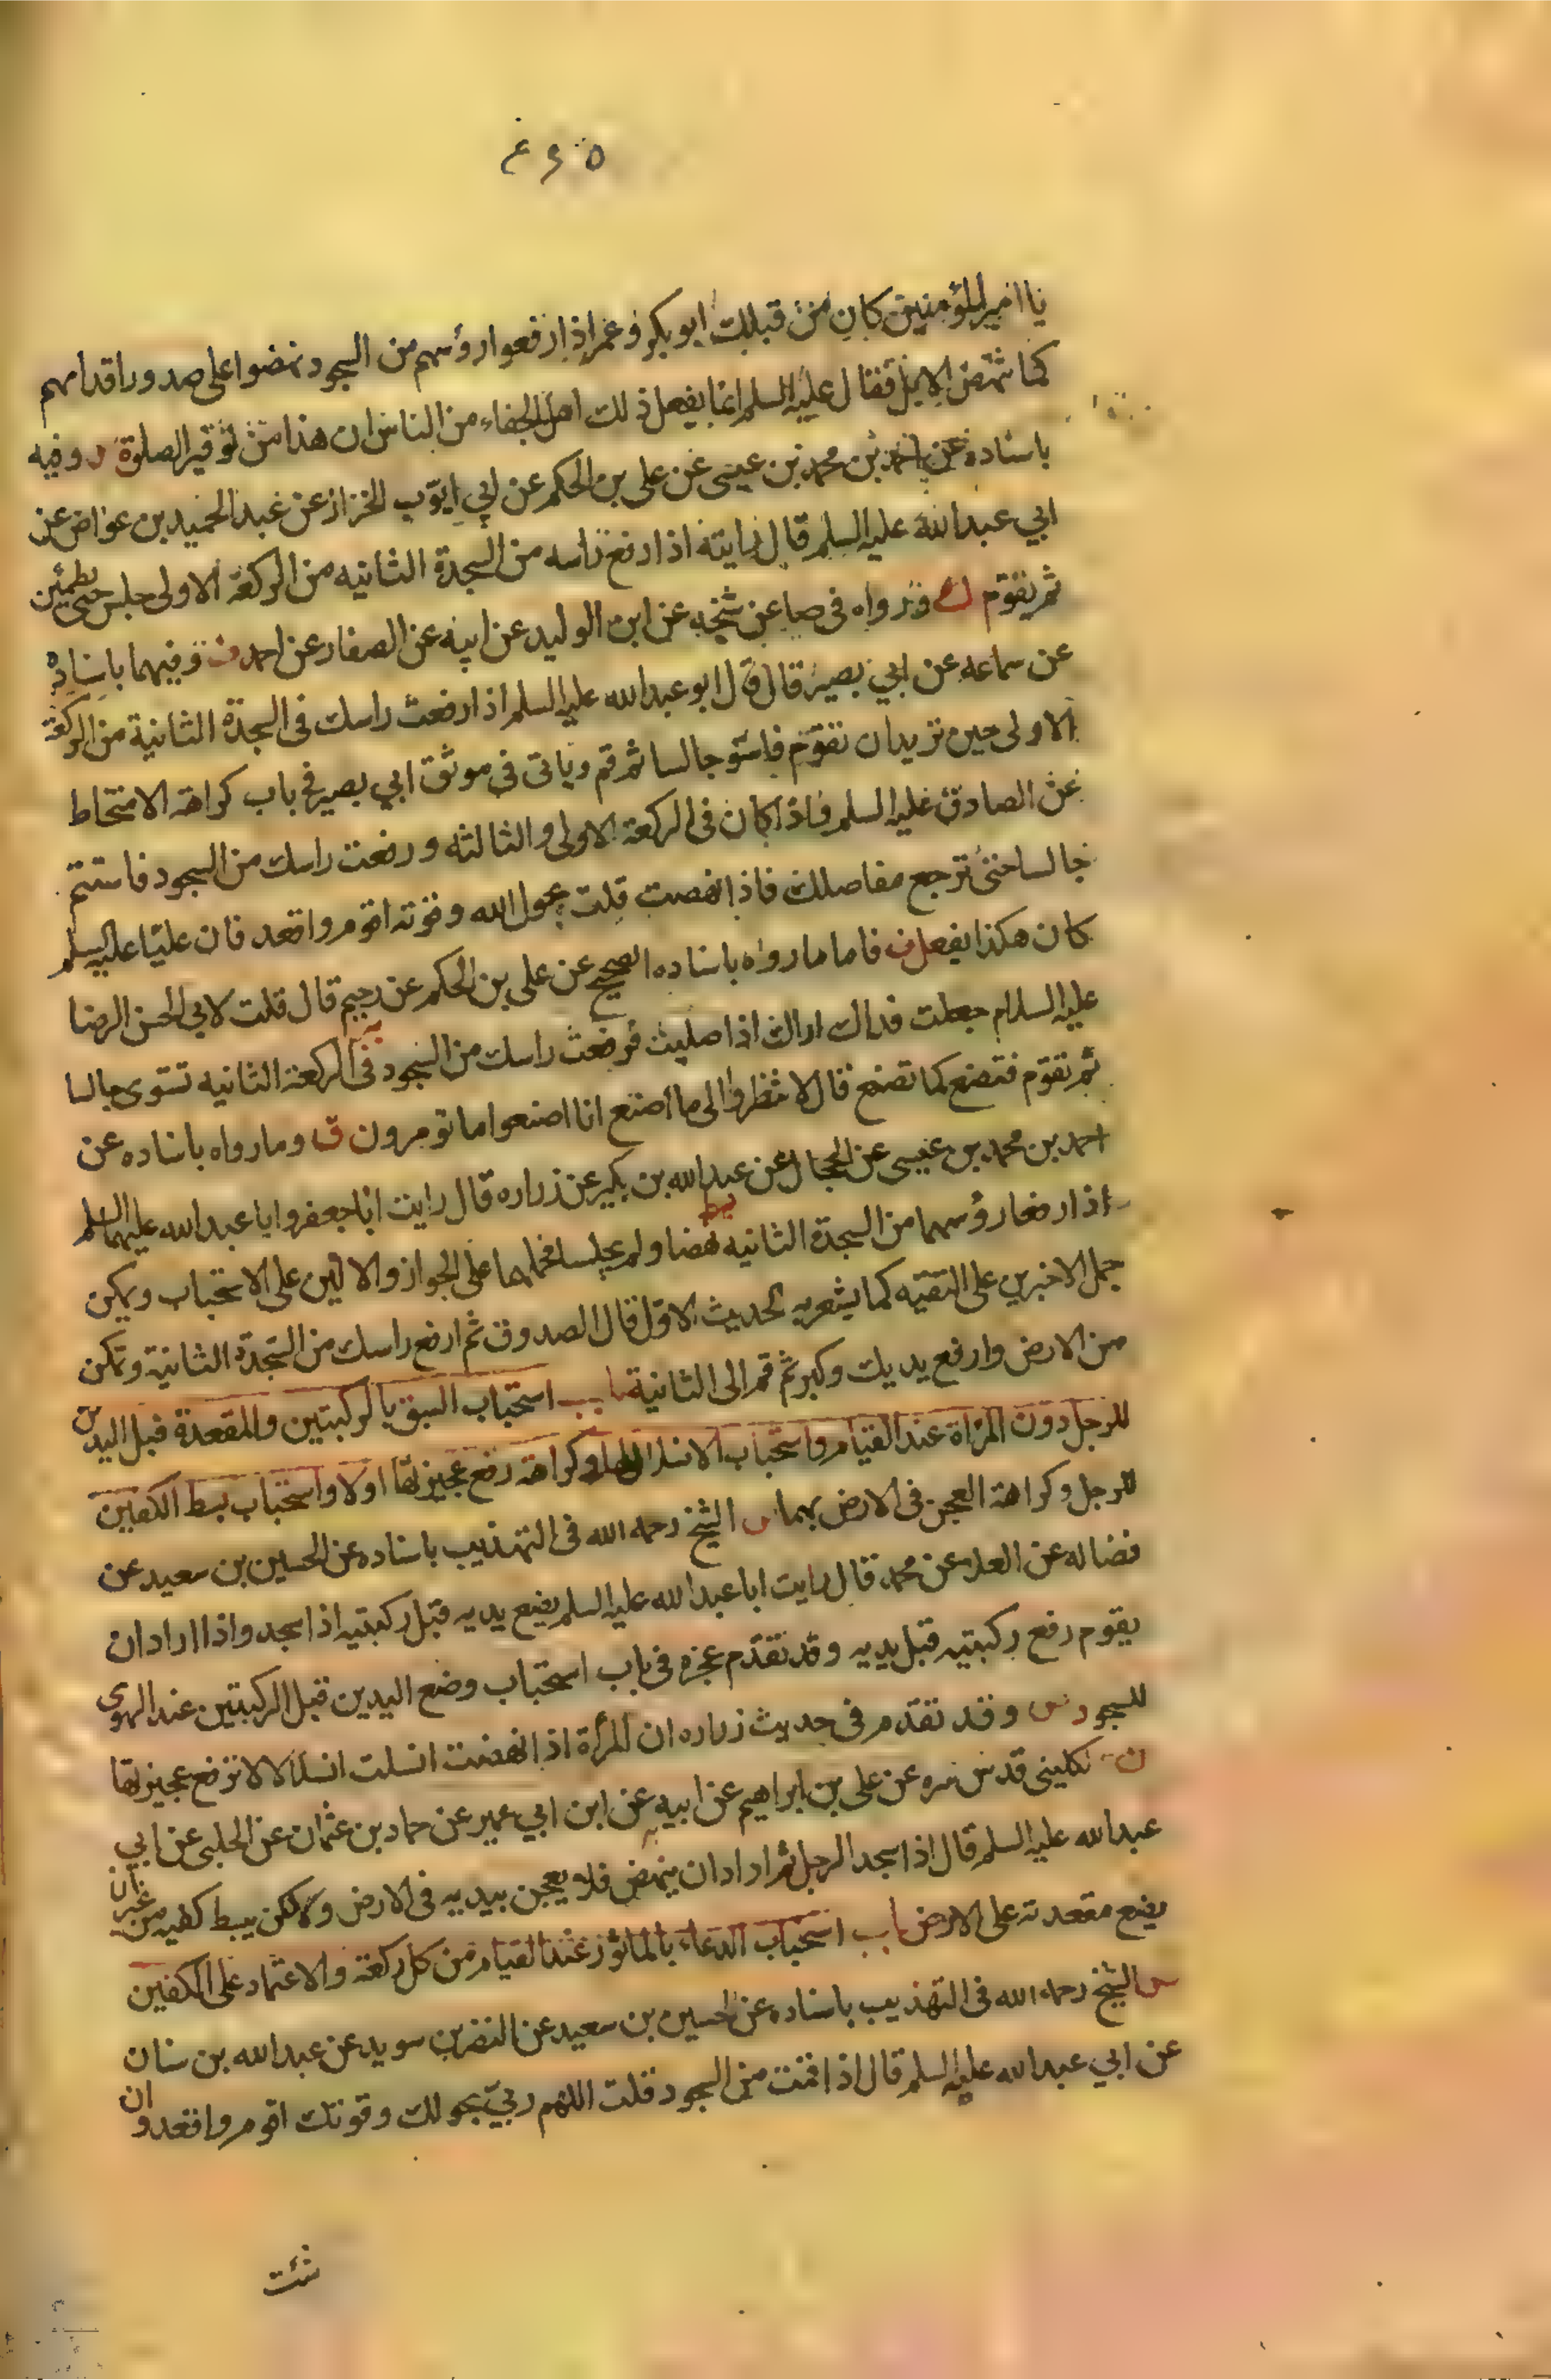 يا امير المؤمنين كان من قبلك ابو بكر وعمر اذا رفعوا رؤسهم من السجود نهضوا على صدور اقدامهم
كما تنهض الابل فقال عليه السلم انما يفعل ذلك اهل الجفاء من الناس ان هذا من توقير الصلوة وفيه
باسناده عن احمد بن محمد بن عيسى عن على بن الحكم عن ابي ايوب الخزاز عن عبد الحميد بن عواض عن
ابي عبد الله عليه السلم قال رايته اذا رفع راسه من السجدة الثانيه من الركعة الاولى جلس حتى يطمئن
ثم يقوم ورواه فى صا عن شيخه عن ابن الوليد عن ابيه عن الصفار عن احمد وفيهما باسناده
عن سماعه عن ابي بصير قال قال ابو عبد الله عليه السلم اذا رفعت راسك فى السجدة الثانية من الركعة
الاولى حين تريد ان تقوم فاستو جالسا ثم قم وياتى فى موثق ابي بصير فى باب كراهة الامتخاط
عن الصادق عليه السلم فاذا كان فى الركعة الاولى والثالثه ورفعت راسك من السجود فاستتم
جالسا حتى ترجع مفاصلك فاذا نهضت قلت بحول الله وقوته اقوم واقعد فان عليا عليه السلم
كان هكذا يفعل فاما ما رواه باسناده الصحيح عن على بن الحكم عن رحيم قال قلت لابي الحسن الرضا
عليه السلام جعلت فداك اراك اذا صليت فرفعت راسك من السجود فى الركعة الثانيه تستوى جالسا
ثم تقوم فتصنع كما تصنع قال لا تنظروا الى ما اصنع انا اصنعوا ما تومرون وما رواه باسناده عن
احمد بن محمد بن عيسى عن الحجال عن عبد الله بن بكير عن زراره قال رايت ابا جعفر وابا عبد الله عليهما السلم
اذا رفعا رؤسهما من السجدة الثانيه نهضا ولم يجلسا فحملهما على الجواز والاولين على الاستحباب ويمكن
حمل الاخبرين على التقيه كما يشعر به الحديث الاول قال الصدوق ثم ارفع راسك من السجدة الثانية وتمكن
من الارض وارفع يديك وكبر ثم قم الى الثانية باب استحباب السبق بالركبتين والمقعدة قبل اليدين
للرجل دون المرأة عند القيام واستحباب الانسلال لها وكراهة رفع عجيزتها اولا واستحباب بسط الكفين
للرجل وكراهة العجن فى الارض بهما الشيخ رحمه الله فى التهذيب باسناده عن الحسين بن سعيد عن
فضاله عن العلا عن محمد قال رايت ابا عبد الله عليه السلم يضع يديه قبل ركبتيه اذا سجد واذا اراد ان
يقوم رفع ركبتيه قبل يديه وقد تقدم عجزه فى باب استحباب وضع اليدين قبل الركبتين عند الهوى
للسجود وقد تقدم فى حديث زراره ان المرأة اذا نهضت انسلت انسلالا لا ترفع عجيزتها
الكلينى قدس سره عن على بن ابراهيم عن ابيه عن ابن ابي عمير عن حماد بن عثمان عن الحلبى عن ابي
عبد الله عليه السلم قال اذا سجد الرجل ثم اراد ان ينهض فلا يعجن بيديه فى الارض ولكن يبسط كفيه من غير ان
يضع مقعدته على الارض باب استحباب الدعاء بالماثور عند القيام من كل ركعة والاعتماد على الكفين
الشيخ رحمه الله فى التهذيب باسناده عن الحسين بن سعيد عن النضر بن سويد عن عبد الله بن سنان
عن ابي عبد الله عليه السلم قال اذا قمت من السجود قلت اللهم ربي بحولك وقوتك اقوم واقعد وان
شئت